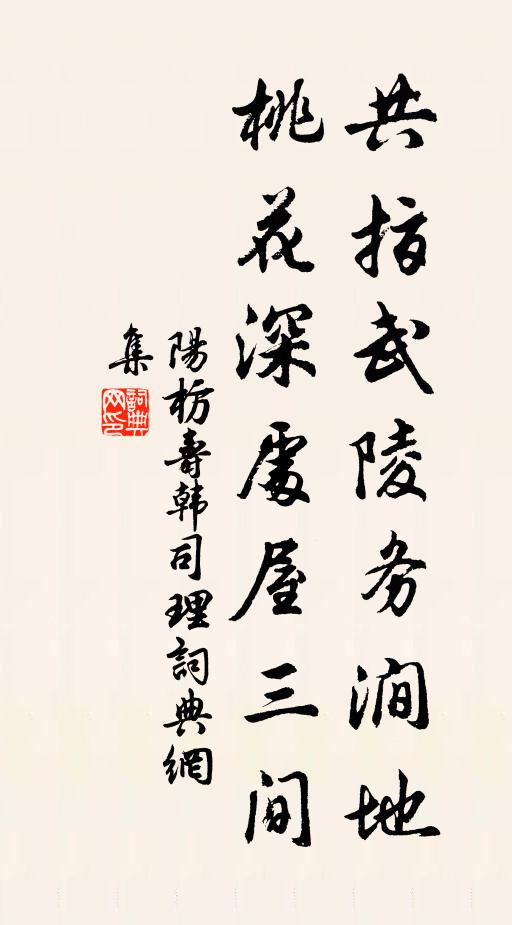 共指武陵务涧地
桃花深處屋三间
陽枋壽韩司理詞典網
集
詞典
网印